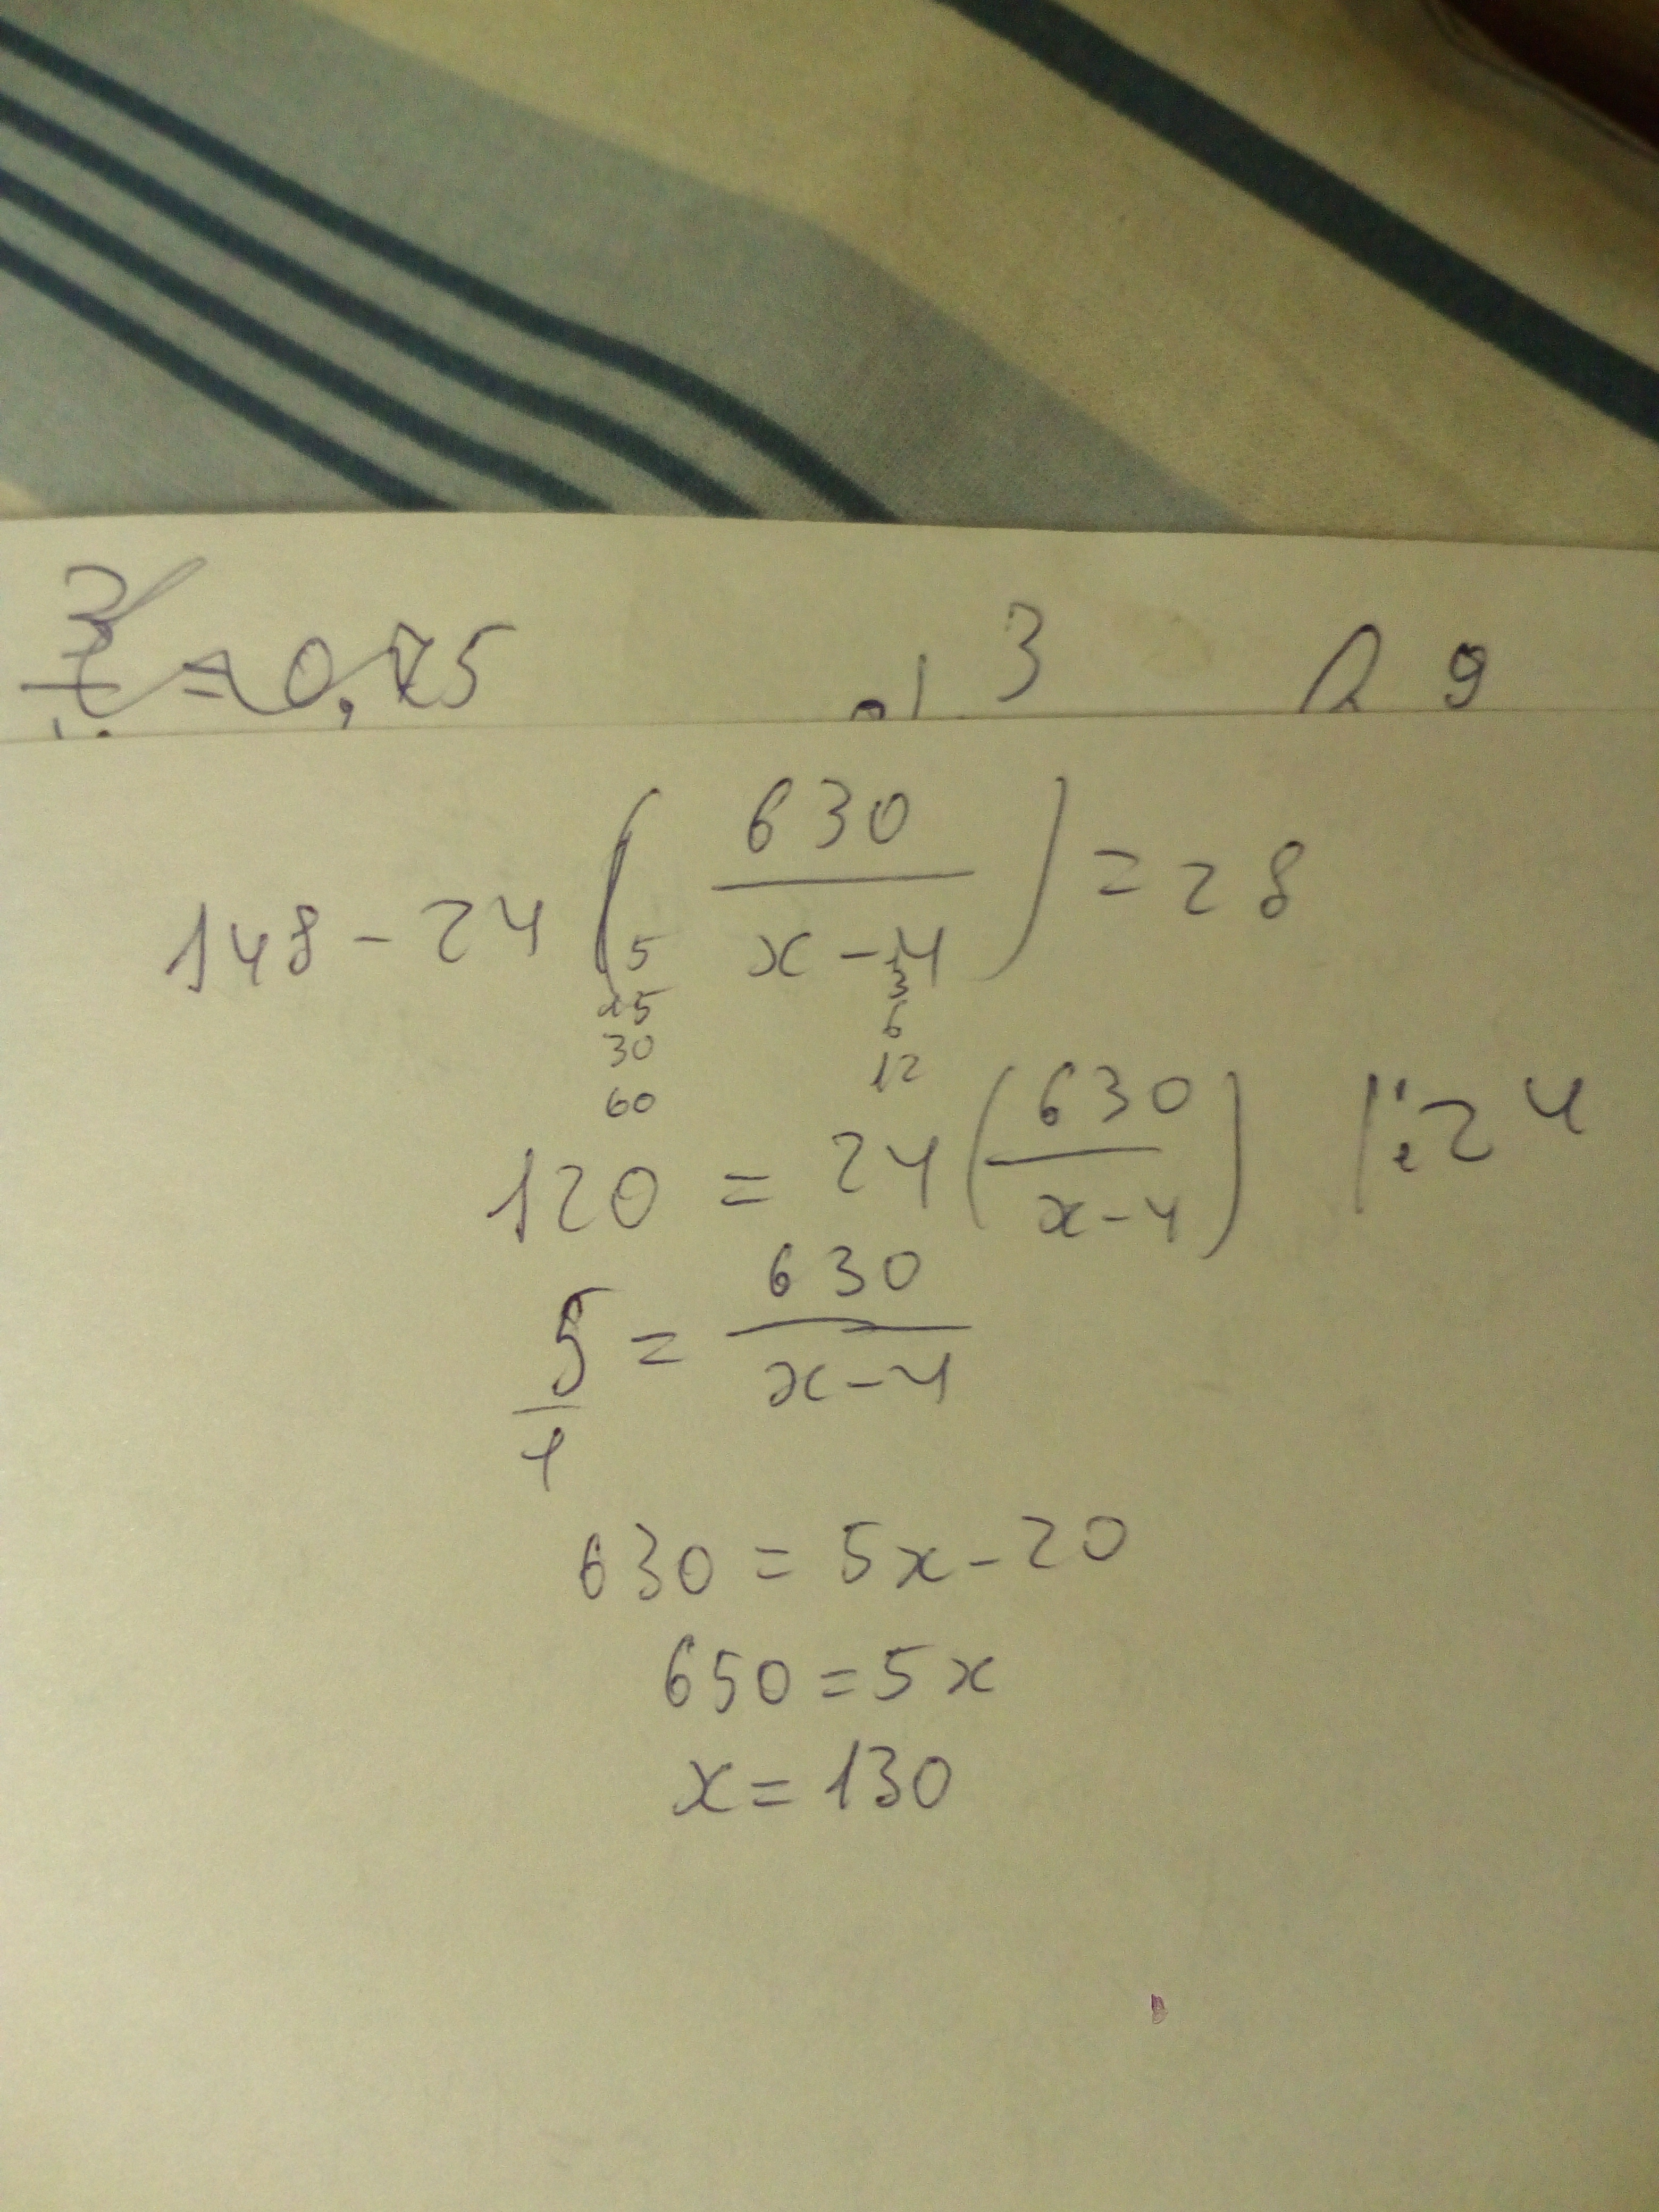 3/4 = 0,75
3 9
148 - 24 ( 630 / x - 4 ) = 28
5 3
15 6
30 12
60
120 = 24 ( 630 / x - 4 ) |:24
5/1 = 630 / x - 4
630 = 5x - 20
650 = 5x
x = 130